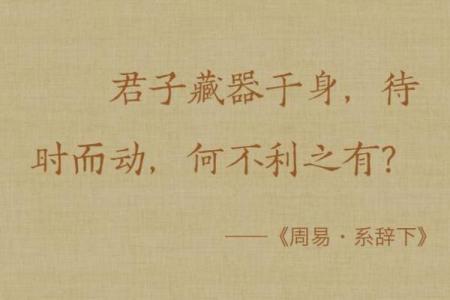 君子藏器于身，待
时而动，何不利之有？
——《周易·系辞下》